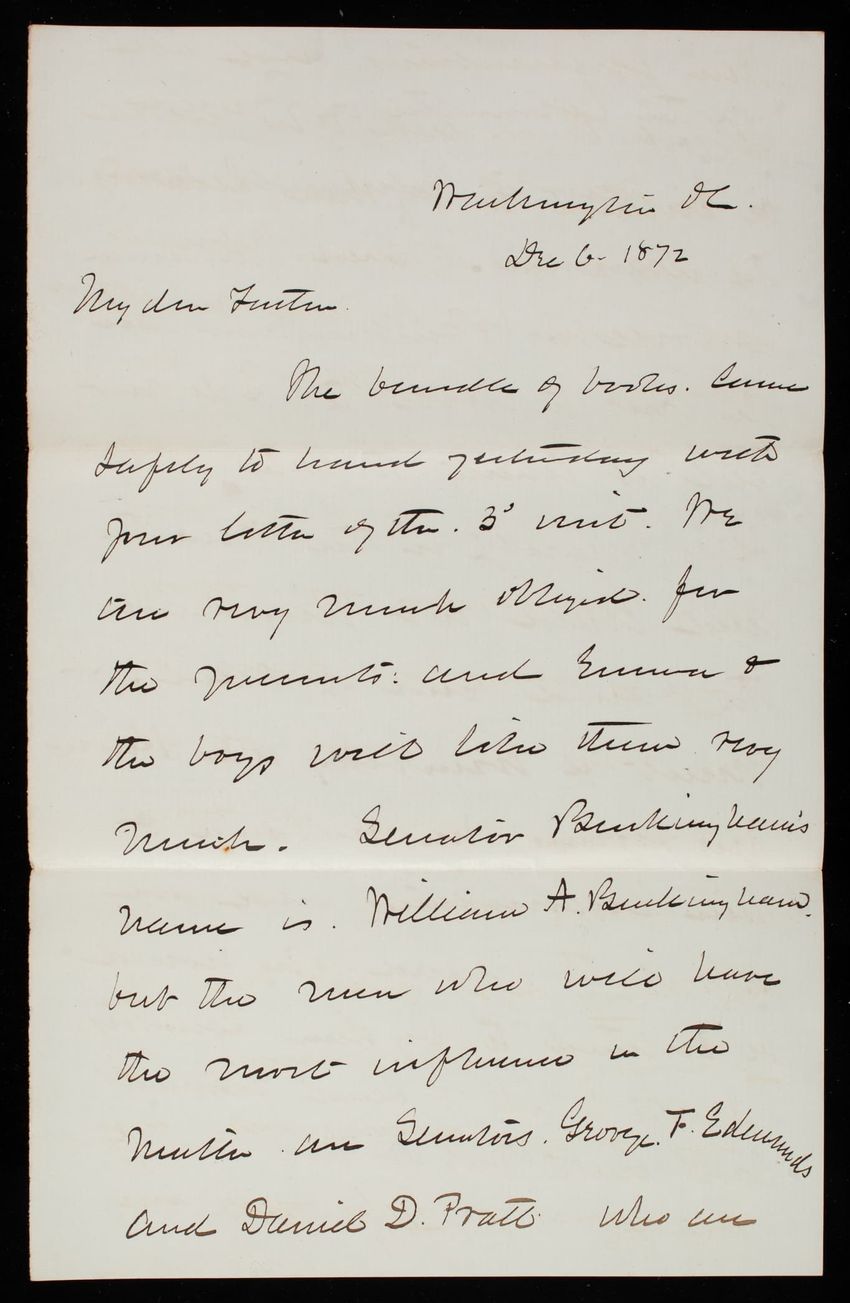 Washington DC.
Dec 6. 1872
My dear Turtin.
The bundle of books. came
safely to hand yesterday with
your letter of the. 3d inst. We
are very much obliged. for
the presents: and Emma &
the boys will like them very
much. Senator Buckingham's
name is. William A. Buckingham.
but the men who will have
the most influence in the
matter are Senators. George. F. Edmunds
and Daniel D. Pratt who are